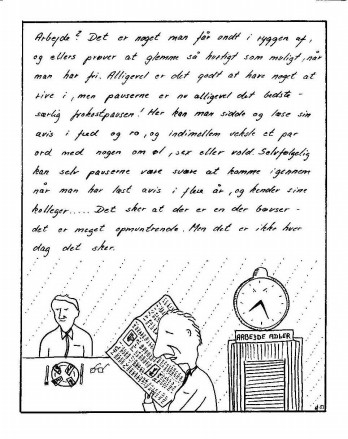 Arbejde? Det er noget man får ondt i ryggen af,
og ellers prøver at glemme så hurtigt som muligt, når
man har fri. Alligevel er det godt at have noget at
rive i, men pauserne er nu alligevel det bedste -
særlig frokostpausen! Her kan man sidde og læse sin
avis i fred og ro, og indimellem veksle et par
ord med nogen om øl, sex eller vold. Selvfølgelig
kan selv pauserne være svære at komme igennem
når man har læst avis i flere år, og kender sine
kolleger..... Det sker at der er en der bøvser -
det er meget opmuntrende. Men det er ikke hver
dag det sker.
ARBEJDE ADLER